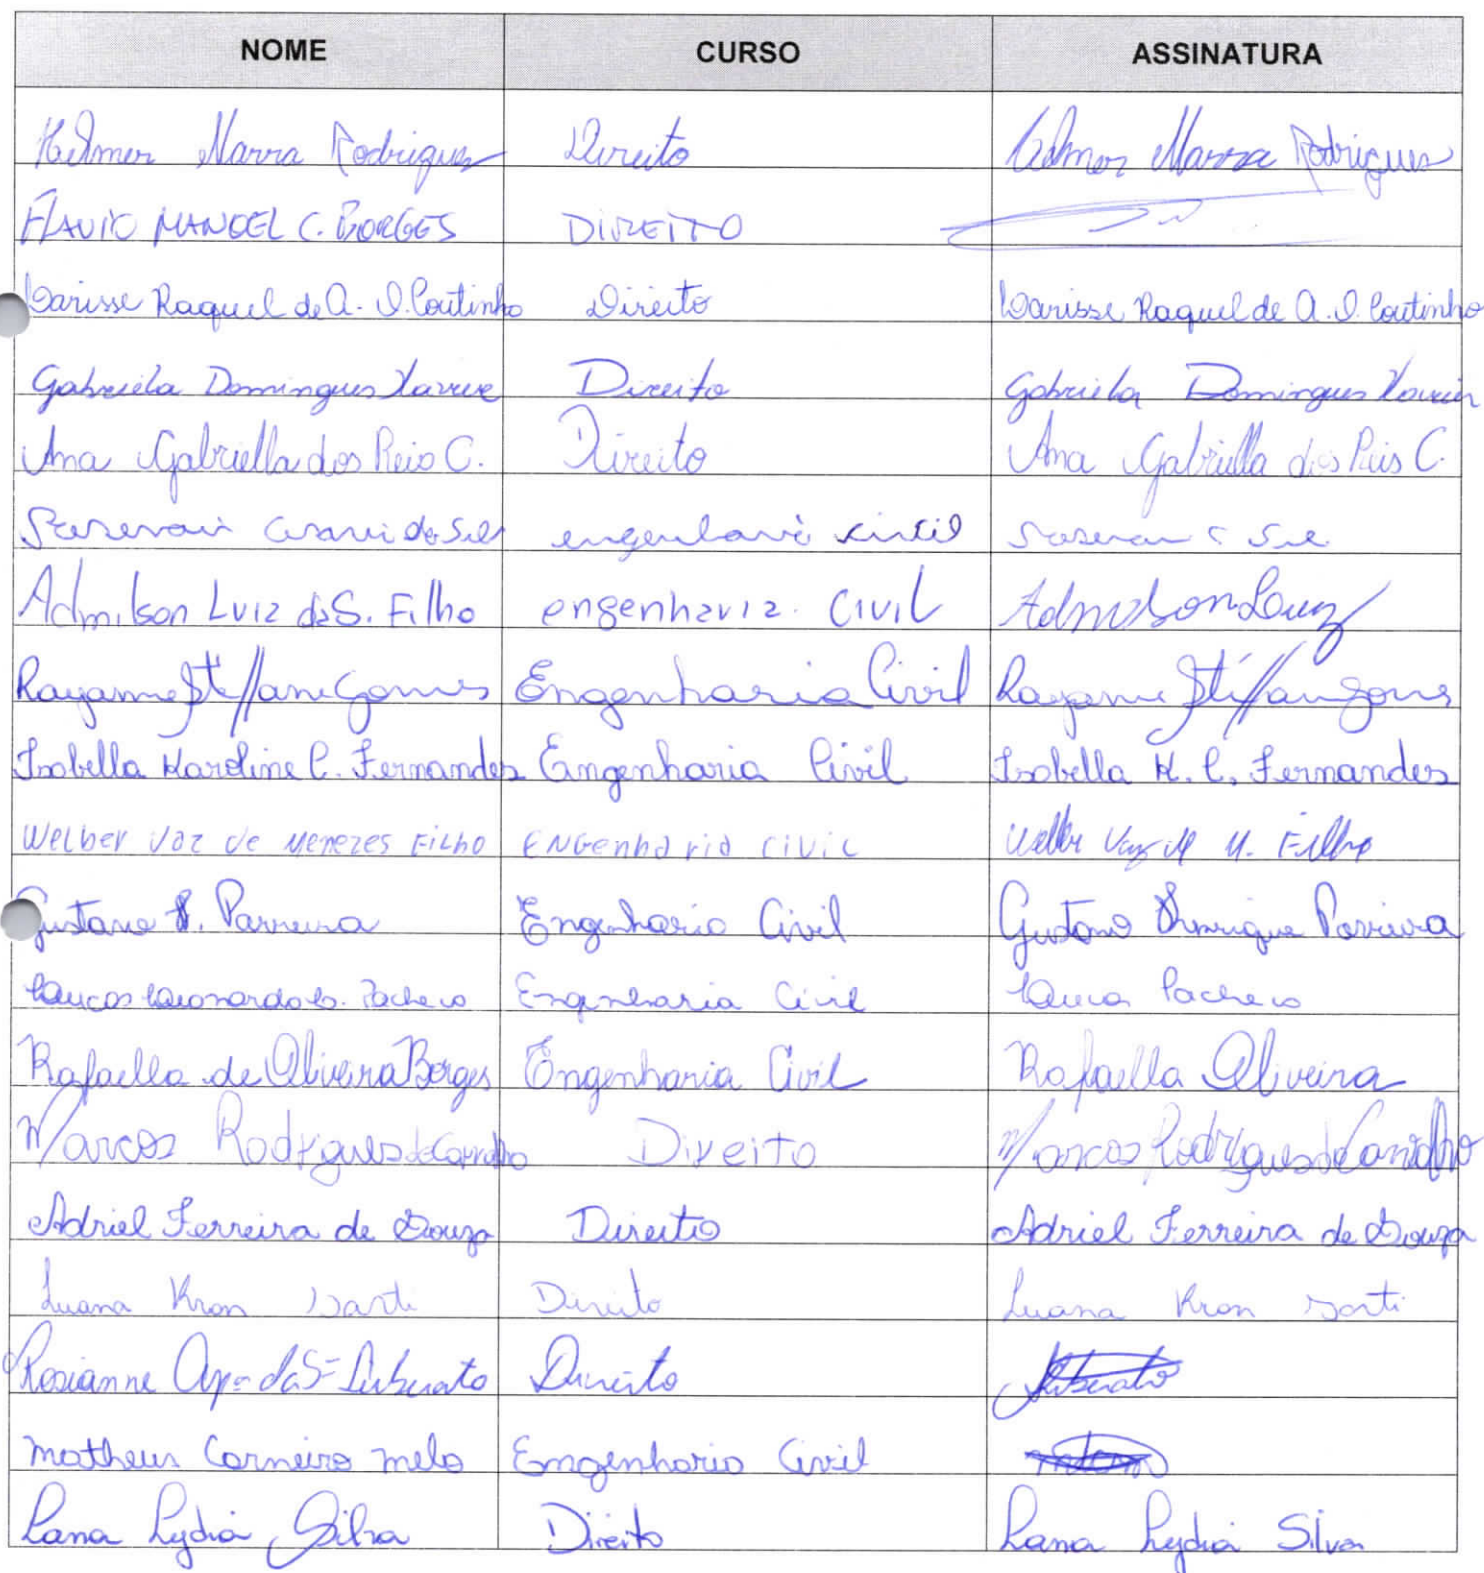 NOME CURSO ASSINATURA
Kelmer Marra Rodrigues Direito Kelmer Marra Rodrigues
FLAVIO MANOEL C. BORGES DIREITO
Larisse Raquel de A. D. Coutinho Direito Larisse Raquel de A. D. Coutinho
Gabriela Domingues Xavier Direito Gabriela Domingues Xavier
Ana Gabriella dos Reis C. Direito Ana Gabriella dos Reis C.
da Silv engenharia civil
Admilson Luiz da S. Filho engenharia Civil Admilson Luiz
Rayanne Stéffane Gomes Engenharia Civil Rayanne Stéffane Gomes
Isabella Karoline C. Fernandes Engenharia Civil Isabella K. C. Fernandes
Welber Vaz de Menezes Filho Engenharia Civil Welber Vaz de M. Filho
Gustavo H. Parreira Engenharia Civil Gustavo Henrique Parreira
Lucas Leonardo B. Pacheco Engenharia Civil Lucas Pacheco
Rafaella de Oliveira Borges Engenharia Civil Rafaella Oliveira
Marcos Rodrigues de Carvalho Direito Marcos Rodrigues de Carvalho
Adriel Ferreira de Souza Direito Adriel Ferreira de Souza
Luana Kron Sarti Direito Luana Kron Sarti
Rosianne Ap. da S. Liberato Direito Liberato
Matheus Carneiro Melo Engenharia Civil
Lana Lydia Silva Direito Lana Lydia Silva